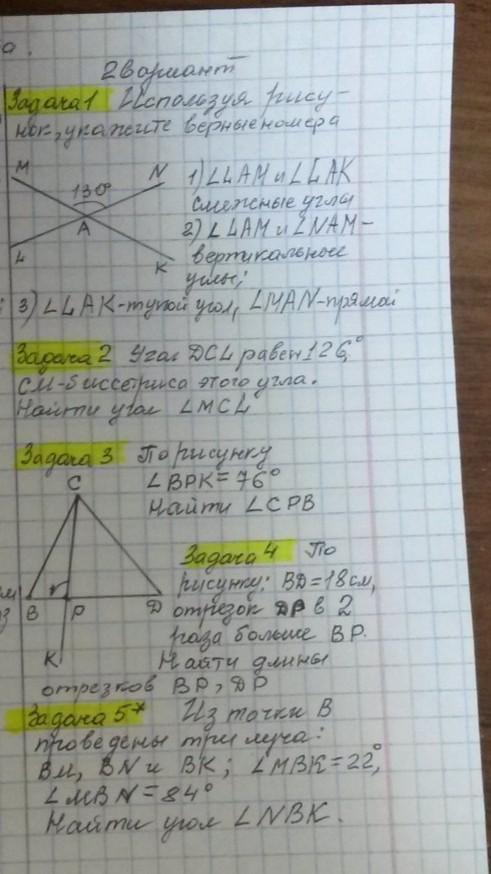 а.
2 Вариант
Задача 1 Используя рису-
нок, укажите верные номера
M N 1) ∠LAM и ∠LAK
130° смежные углы
A 2) ∠LAM и ∠NAM -
L K вертикальные
углы;
3) ∠LAK - тупой угол, ∠MAN - прямой
Задача 2 Угол DCL равен 126°,
CM - биссектриса этого угла.
Найти угол ∠MCL
Задача 3 По рисунку
C ∠BPK = 76°
Найти ∠CPB
Задача 4 По
рисунку: BD = 18 см,
B P D отрезок DP в 2
раза больше BP.
K Найти длины
отрезков BP, DP
Задача 5* Из точки B
проведены три луча:
BM, BN и BK; ∠MBK = 22°,
∠MBN = 84°
Найти угол ∠NBK.